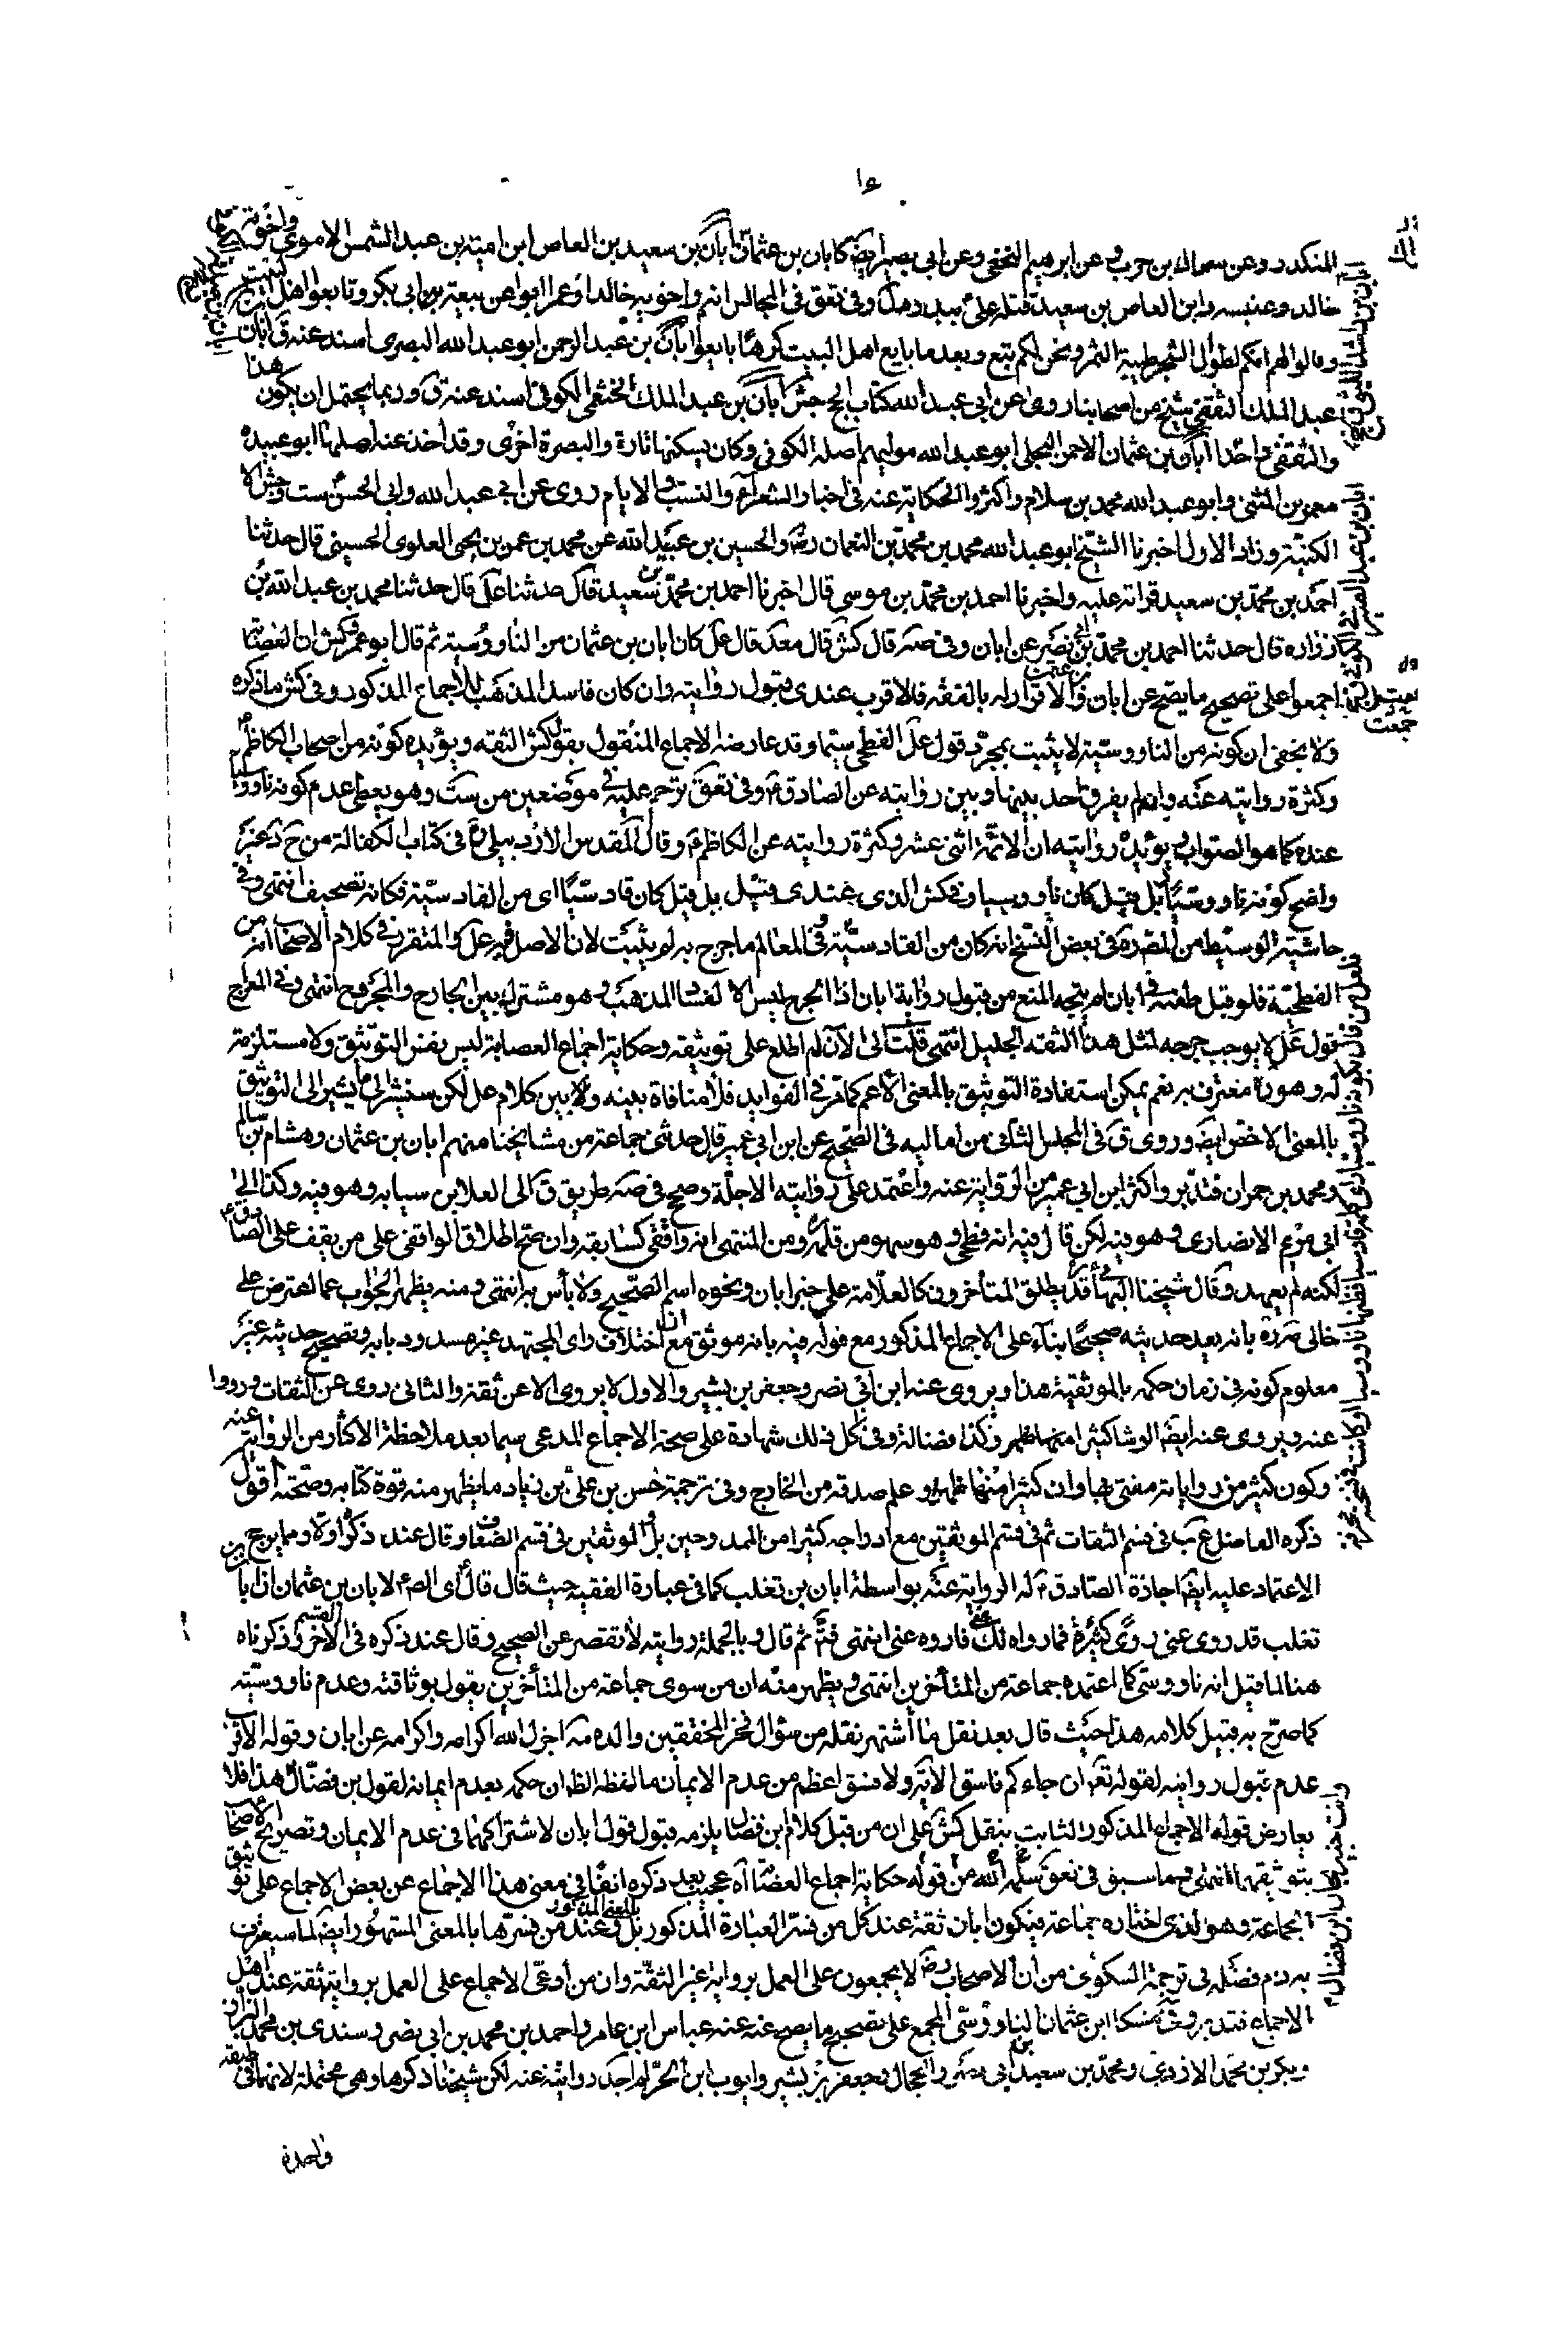 المنكدر وعن سماك بن حرب وعن ابرهيم النخعي وعن ابي بصير ايض كابان بن عثمان ابان بن سعيد بن العاص ابن امية بن عبد الشمس الاموي واخوته
خالد وعنبسه وابن العاص بن سعيد قتله علي ببدر وفي تعق في المجالس انه واخويه خالدا وعمرا ابوا عن بيعة ابي بكر وتابعوا اهل البيت
وقالوا لهم انكم لطوال الشجر طيبة الثمر ونحن لكم تبع وبعد ما بايع اهل البيت كرها بايعوا ابان بن عبد الرحمن ابو عبد الله البصري اسند عنه ق ابان بن
عبد الملك الثقفي شيخ من اصحابنا روى عن ابي عبد الله كتاب الحج جش ابان بن عبد الملك الخثعمي الكوفي اسند عنه ق وربما يحتمل ان يكون هذا
والثقفي واحدا ابان بن عثمان الاحمر البجلي ابو عبد الله مولهم اصله الكوفي وكان يسكنها تارة والبصرة اخرى وقد اخذ عنه اهلها ابو عبيده
معمر بن المثنى وابو عبد الله محمد بن سلام واكثروا الحكاية عنه في اخبار الشعراء والنسب والايام روى عن ابي عبد الله وابي الحسن ست وجش الا
الكنية وزاد الاول اخبرنا الشيخ ابو عبد الله محمد بن محمد بن النعمان ره والحسين بن عبيد الله عن محمد بن عمر بن يحيى العلوي الحسيني قال حدثنا
احمد بن محمد بن سعيد قراته عليه واخبرنا احمد بن محمد بن موسى قال اخبرنا احمد بن محمد بن سعيد قال حدثنا علي قال حدثنا محمد بن عبد الله بن
زراره قال حدثنا احمد بن محمد بن ابي نصر عن ابان وفي صه قال كش قال معد قال عل كان ابان بن عثمان من الناووسية ثم قال ابو عمرو كش ان العصابة
اجمعوا على تصحيح ما يصح عن ابان بن عثمان والاقرار له بالفقه فالاقرب عندي قبول روايته وان كان فاسد المذهب للاجماع المذكور وفي كش ما ذكره
ولا يخفى ان كونه من الناووسية لا يثبت بمجرد قول عل الفطحي سيما وقد عارضه الاجماع المنقول بقول كش الثقه ويؤيده كونه من اصحاب الكاظم
وكثرة روايته عنه وانه لم يفرق احد بينها وبين روايته عن الصادق وفي تعق ترحم عليه في موضعين من ست وهو يعطي عدم كونه ناووسيا
عنده كما هو الصواب ويؤيده روايته ان الائمة اثنى عشر وكثرة روايته عن الكاظم وقال المقدس الاردبيلي في كتاب الكفالة من ح د غير
واضح كونه ناووسيا بل قيل كان ناووسيا وفي كش الذي عندي قيل بل قيل كان قادسيا اي من القادسية فكانه تصحيف انتهى وفي
حاشية الوسيط من المص ره في بعض النسخ انه كان من القادسية وفي المعالم ما جرح به لم يثبت لان الاصل فيه عل والمتقرر في كلام الاصحاب انه من
الفطحية فلو قبل طعنه في ابان لم يتجه المنع من قبول رواية ابان اذ الجرح ليس الا لفساد المذهب وهو مشترك بين الجارح والمجروح انتهى وفي المعراج
قول عل لا يوجب جرحه لمثل هذا الثقه الجليل انتهى قلت الى الآن لم اطلع على توثيقه وحكاية اجماع العصابة ليس بنفس التوثيق ولا مستلزمة
له وهو ره معترف به نعم يمكن استفادة التوثيق بالمعنى الاعم كما مر في الفوايد فلا منافاة بينه ولا بين كلام عل لكن سنشير الى ما يشير الى التوثيق
بالمعنى الاخص ايض وروى ق في المجلس الثاني من اماليه في الصحيح عن ابن ابي عمير قال حدثني جماعة من مشايخنا منهم ابان بن عثمان وهشام بن سالم
ومحمد بن حمران فتدبر واكثر ابن ابي عمير من الرواية عنه واعتمد على روايته الاجلة وصحح في صه طريق ق الى العلا بن سيابه وهو فيه وكذا الى
ابي مريم الانصاري وهو فيه لكن قال فيه انه فطحي وهو سهو من قلمه ومن المنتهى انه واقفي كسابقه وان صح اطلاق الواقفي على من يقف على الصادق
لكنه لم يعهد وقال شيخنا البهائي قد يطلق المتأخرون كالعلامة على خبر ابان ونحوه اسم الصحيح ولا بأس به انتهى ومنه يظهر الجواب عما اعترض على
خالي ره بانه يعد حديثه صحيحا بناء على الاجماع المذكور مع قوله فيه بانه موثق مع ان اختلاف راى المجتهد غير مسدود بابه وتصحيح حديثه غير
معلوم كونه في زمان حكمه بالموثقية هذا ويروى عنه ابن ابي نصر وجعفر بن بشير والاول لا يروى الا عن ثقة والثاني روى عن الثقات ورووا
عنه ويروى عنه ايض الوشا كثيرا وكذا فضالة وفي كل ذلك شهادة على صحة الاجماع المدعى سيما بعد ملاحظة الاكثار من الرواية عنه
وكون كثير من رواياته مفتى بها وان كثيرا منها ظهر وعلم صدقه من الخارج وفي ترجمة حسن بن علي بن زياد ما يظهر منه قوة كتابه وصحته اقول
ذكره الفاضل عب في قسم الثقات ثم في قسم الموثقين مع ادراجه كثيرا من الممدوحين بل والموثقين في قسم الضعفاء وقال عند ذكره اولا ومما يرجح
الاعتماد عليه ايض اجازة الصادق له الرواية عنه بواسطة ابان بن تغلب كما في عبارة الفقيه حيث قال قال اي الص لابان بن عثمان ان ابان بن
تغلب قد روى عني روى كثيرة فما رواه لك عني فاروه عني انتهى ثم قال وبالجملة روايته لا تقصر عن الصحيح وقال عند ذكره في القسم الآخر وذكرناه
هنا لما قيل انه ناووسي كما اعتمده جماعة من المتأخرين انتهى ويظهر منه ان من سوى جماعة من المتأخرين يقول بوثاقته وعدم ناووسيته
كما صرح به قبيل كلامه هذا حيث قال بعد نقل ما اشتهر نقله من سؤال فخر المحققين والده اجزل الله اكرامه واكرامه عن ابان وقوله الاقرب
عدم قبول روايته لقوله تع ان جاءكم فاسق الاية ولا فسق اعظم من عدم الايمان ما لفظه الظ ان حكمه بعدم ايمانه لقول بن فضال هذا فلا
يعارض قوله الاجماع المذكور الثابت بنقل كش على ان من قبل كلام ابن فضال يلزمه قبول قول ابان لاشتراكهما في عدم الايمان وتصريح الاصحاب
بتوثيقهما انتهى فما سبق في تعق سلمه الله من قوله حكاية اجماع العصابة آه عجيب بعد ذكره انفا في معنى هذا الاجماع عن بعض الاجماع على توثيق
الجماعة وهو الذي اختاره جماعة فيكون ابان ثقة عند كل من فسر العبارة المذكور بالمعنى المذكور بل وعند من فسرها بالمعنى المشهور ايض لما سيعترف
به دام فضله في ترجمة السكوني من ان الاصحاب رض لا يجمعون على العمل برواية غير الثقة وان من ادعى الاجماع على العمل بروايته ثقة عند اهل
الاجماع فتدبر وفي مشكا ابن عثمان الناووسي المجمع على تصحيح ما يصح عنه عنه عباس ابن عامر واحمد بن محمد بن ابي نصر وسندي بن محمد البزاز
وبكر بن محمد الازدي ومحمد بن سعيد بن ابي نصر والجمال وجعفر بن بشير وايوب ابن الحر لم اجد روايته عنه لكن شيخنا ذكرها وهي محتملة لانهما في طبقة
واحدة